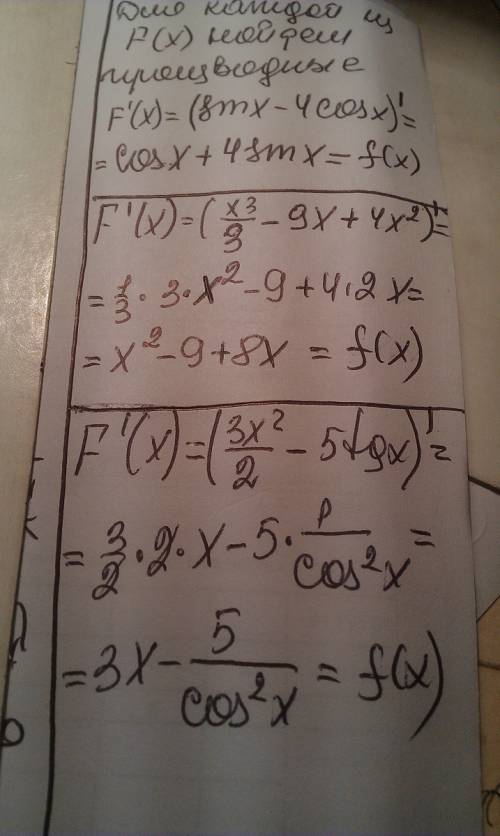 Для каждой из
F(x) найдем
производные
F'(x) = (sinx - 4cosx)' =
= cosx + 4sinx = f(x)
F'(x) = (x³/3 - 9x + 4x²)' =
= 1/3 · 3 · x² - 9 + 4·2x =
= x² - 9 + 8x = f(x)
F'(x) = (3x²/2 - 5tgx)' =
= 3/2 · 2 · x - 5 · 1/cos²x =
= 3x - 5/cos²x = f(x)